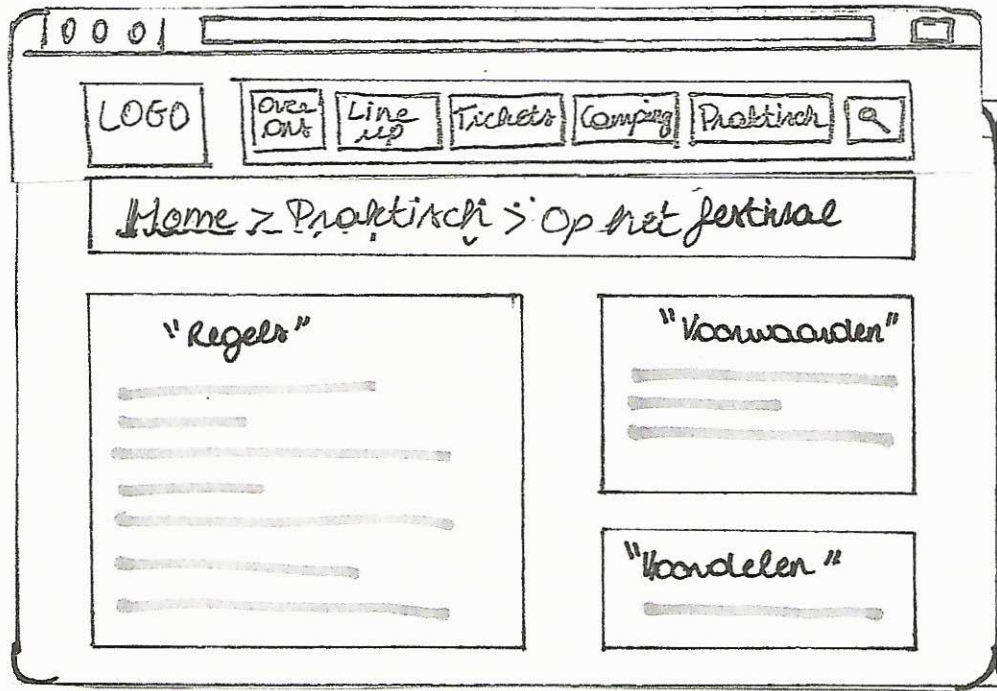 LOGO
Over
ons
Line
up
Tickets
Camping
Praktisch
Home > Praktisch > Op het festival
"Regels"
"Voorwaarden"
"Voordelen"